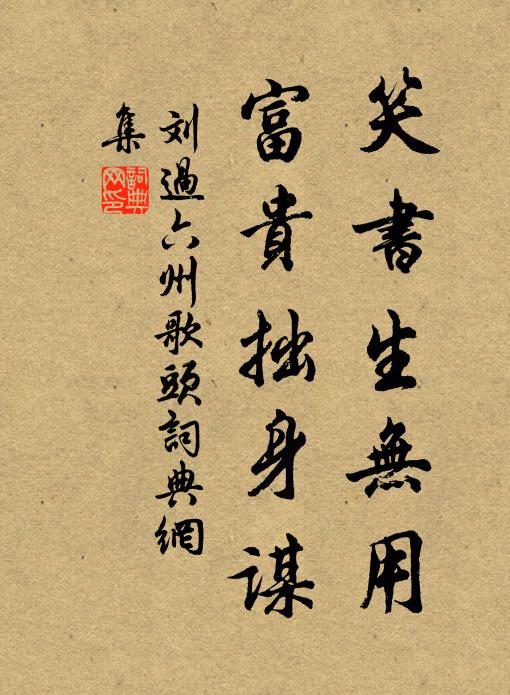 笑書生無用
富貴拙身謀
刘過六州歌頭詞典網
集
詞典
网印